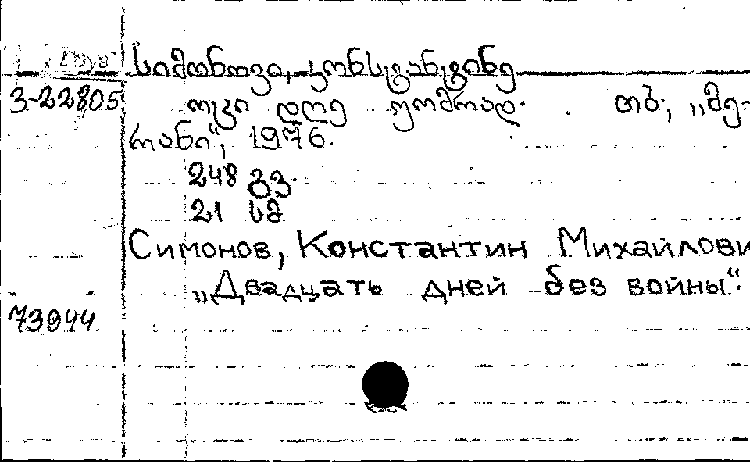 სიმონოვი, კონსტანტინე
3-22805 ოცი დღე უომრად. თბ., „მე-
რანი“, 1976.
248 გვ.
21 სმ
Симонов, Константин Михайлови
„Двадцать дней без войны“.
73944